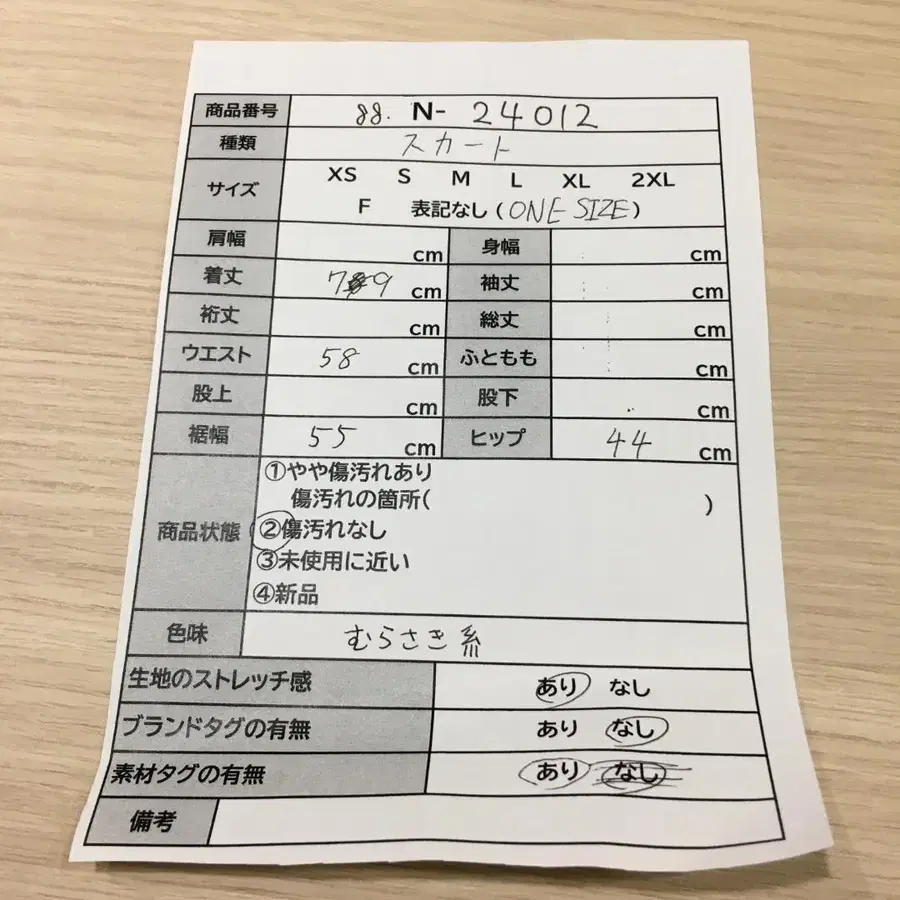 商品番号 gg. N- 24012
種類 スカート
サイズ XS S M L XL 2XL
F 表記なし(ONE SIZE)
肩幅 cm 身幅 cm
着丈 79 cm 袖丈 cm
裄丈 cm 総丈 cm
ウエスト 58 cm ふともも cm
股上 cm 股下 cm
裾幅 55 cm ヒップ 44 cm
商品状態 ①やや傷汚れあり
傷汚れの箇所( )
②傷汚れなし
③未使用に近い
④新品
色味 むらさき系
生地のストレッチ感 あり なし
ブランドタグの有無 あり なし
素材タグの有無 あり なし
備考